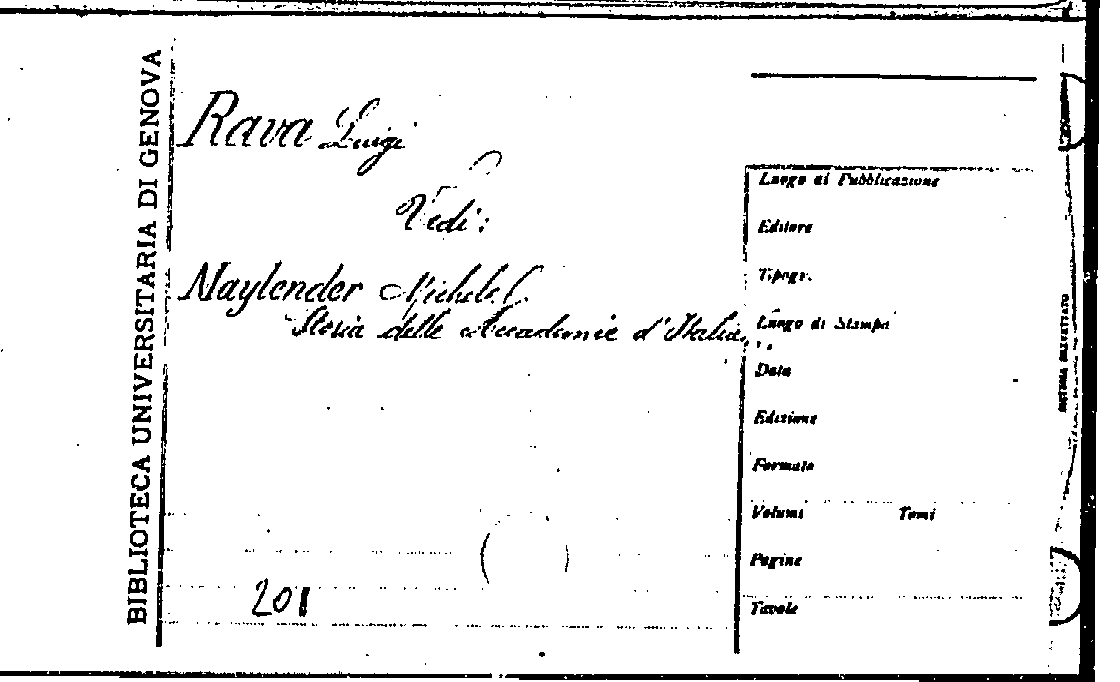 BIBLIOTECA UNIVERSITARIA DI GENOVA
Rava Luigi
Vedi:
Maylender Michele
Storia delle Accademie d'Italia
201
Luogo di Pubblicazione
Editore
Tipogr.
Luogo di Stampa
Data
Edizione
Formato
Volumi Tomi
Pagine
Tavole